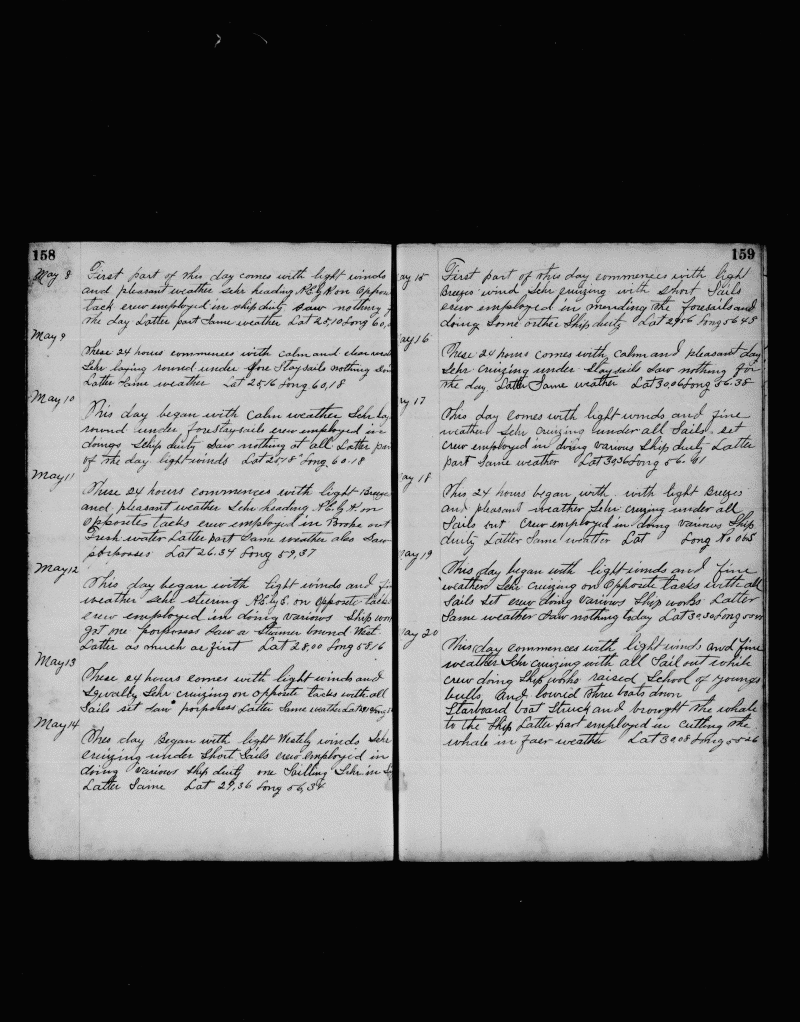 158
May 8 First part of this day comes with light winds
and pleasant weather Schr heading N.E.by N on
tack crew employed in ship duty Saw nothing
the day Latter part Same weather Lat 25,10 Long 60,
May 9
These 24 hours commences with calm and clear
Schr laying round under fore Stay sails nothing
Latter Same weather Lat 25,16 Long 60,18
May 10
This day began with Calm weather Schr
round under forestaysails crew employed in
doings Schip duty Saw nothing at all Latter
of the day light winds Lat 25,18 Long 60.18
May 11
These 24 hours commences with light Breeze
and pleasant weather Schr heading N.E.by N on
Opposites tacks crew employed in Broke out
Fresh water Latter part Same weather also Saw
porposses Lat 26.34 Long 59,37
May 12
This day began with light winds and
weather Schr steering on Opposite tacks
crew employed in doing various Ship
got one porposses Saw a Steamer bound West
Latter as much as first Lat 28,00 Long 58,16
May 13
These 24 hours comes with light winds and
Sqwally Schr cruizing on opposite tacks with all
Sails set Saw porposses Latter Same weather Lat
May 14
This day Began with light Westily winds Schr
cruizing under Short Sails crew employed in
doing various Ship duty one Sailling Schr in
Latter Same Lat 29,36 Long 56,34
159
ay 15 First part of this day commences with light
Breezes wind Schr cruizing with Short Sails
crew employed in mending the foresails and
doing Some outher Ship duty Lat 29,56 Long 56 45
ay 16
These 24 hours comes with calm and pleasant day
Schr cruizing under Stay sails Saw nothing for
the day Latter Same weather Lat 30,06 Long 56.38
y 17
This day comes with light winds and fine
weather Schr cruizing under all Sails set
crew employed in doing various Ship duty Latter
part Same weather Lat 30,36 Long 56.41
ay 18
This 24 hours began with with light Breezes
and pleasant weather Schr cruzing under all
Sails out Crew employed in doing various Ship
duty Latter Same weather Lat Long No obs
ay 19
This day began with light winds and fine
weather Schr cruizing on Opposite tacks with all
Sails set crew doing various Ship works Latter
Same weather Saw nothing today Lat 30,30 Long
ay 20
This day commences with light winds and fine
weather Schr cruizing with all Sail out while
crew doing Ship works raised School of youngs
bulls, and lowrid three boats down
Starboard boat Struck and brought the whale
to the Ship Latter part employed in cutting the
whale in fair weather Lat 30,08 Long 55 26